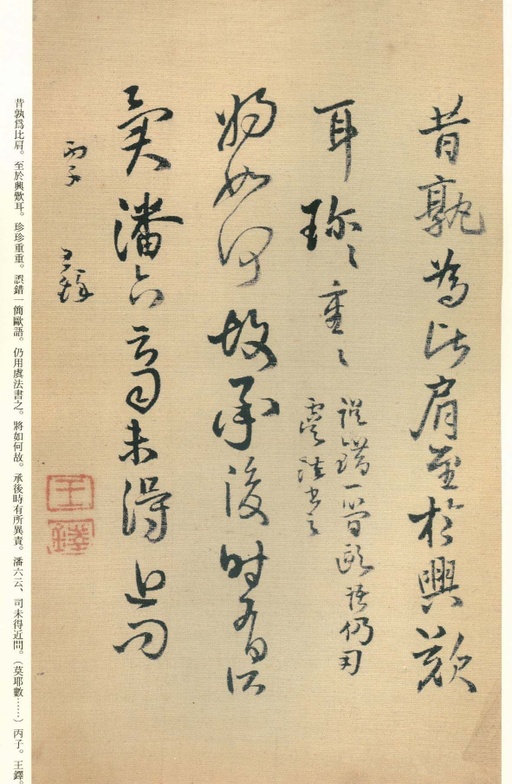 昔孰為比肩至於興歎
耳珍々重々
誤錯一簡歐語仍用
虞法書之
將如何故承後時有所
異潘六云司未得近問
丙子 王鐸
王鐸
昔孰爲比肩。至於興歎耳。珍珍重重。誤錯一簡歐語。仍用虞法書之。將如何故。承後時有所異責。潘六云、司未得近問。（莫耶數……）丙子。王鐸